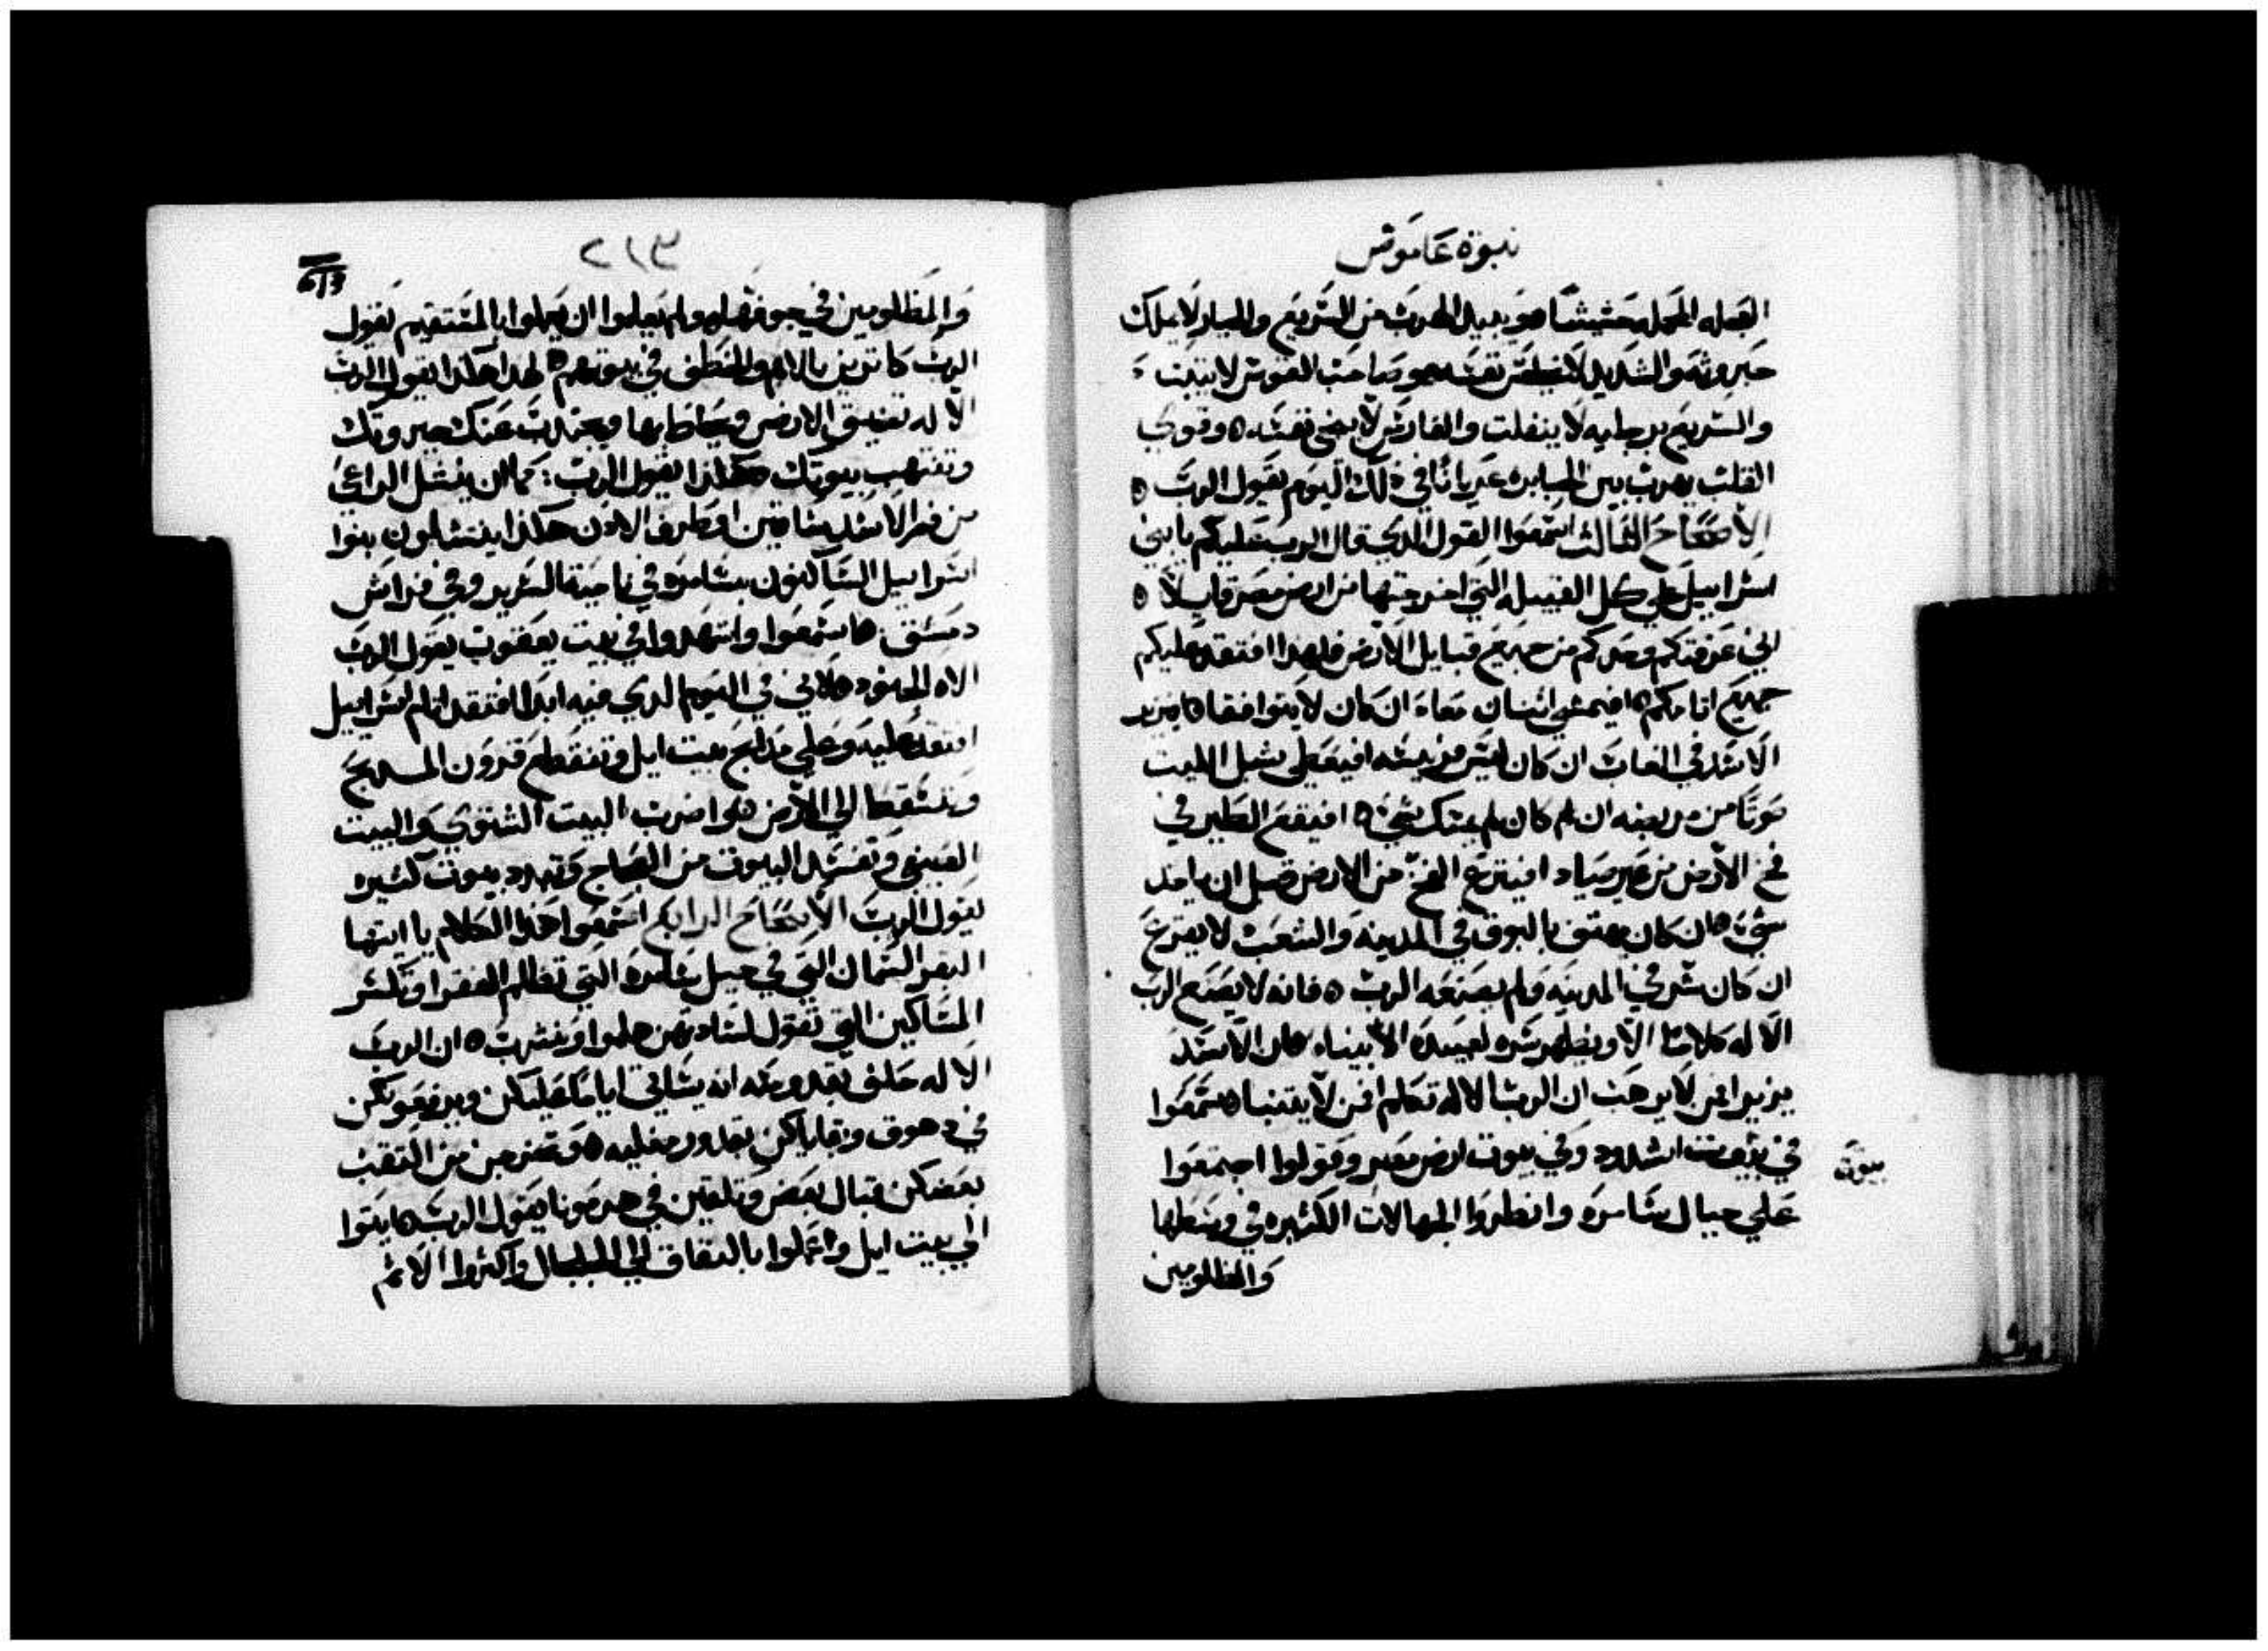 نبوة عاموس
العجله المحمله حشيشا هو يبيد الهرب من السريع والجبار لا يملك
جبروته والشديد لا يخلص نفسه هو صاحب القوس لا يثبت
والسريع برجليه لا ينفلت والفارس لا ينجي نفسه وقوي
القلب يهرب بين الجبابره عريانا في ذلك اليوم يقول الرب
الاصحاح الثالث استمعوا القول الدي قال الرب عليكم يا بني
اسراييل علي كل القبيله التي اخرجتها من ارض مصر قايلا
اني عرفتكم وحدكم من جميع قبايل الارض فلهدا افتقد عليكم
جميع اتامكم افيمشي اتنان معاء ان كان لا يتوافقا افيزير
الاسد في الغاب ان كان ليس فريسه افيعطي شبل الليت
صوتا من مربضه ان لم كان لم يمسك شي افيقع الطير في
فخ الارض من غير صياد افينزع الفخ من الارض قبل ان ياخد
شيء ان كان يهتف بالبوق في المدينه والشعب لا يفزع
ان كان شر في المدينه ولم يصنعه الرب فانه لا يصنع الرب
الاله كلاما الا ويظهر سره لعبيده الانبياء فان الاسد
يزير افمن لا يرهب ان الرب الاله تكلم افمن لا يتنبا استمعوا
في بيوت اشدود وفي بيوت ارض مصر وقولوا اجتمعوا
بيوت
علي جبال سامره وانظروا الجهالات الكثيره في وسطها
والمظلومين
٢١٣
213
والمظلومين في جوفها ولم يعلموا ان يعملوا بالمستقيم يقول
الرب كانزين بالاثم والخطف في بيوتهم لهدا هكدا يقول الرب
الاله تضيق الارض ويحاط بها ويجندب عنك جبروتك
وتنتهب بيوتك هكذا يقول الرب: كما ان ينشل الراعي
من فم الاسد ساقين او طرف الادن هكذا ينتشلون بنوا
اسراييل الساكنون بسامره في ناحية السرير وفي فراش
دمشق استمعوا واشهدوا في بيت يعقوب يقول الرب
الاه الجنود لاني في اليوم الدي فيه ابدا افتقد اتام اسراييل
افتقد عليه وعلي مدابح بيت ايل وتنقطع قرون المدبح
وتسقط الي الارض واضرب البيت الشتوي والبيت
الصيفي وتفسد البيوت من العاج وتهدد بيوت كثيره
يقول الرب الاصحاح الرابع استمعوا هدا الكلام يا ايتها
البقر السمان التي في جبل سامره التي تظالم الفقرا وتكسر
المساكين التي تقول لساداتهن هلموا ونشرب ان الرب
الاله حلف بقدوسه انه يتاتي ايام عليكن ويرفعوكن
في دهوق وبقاياكن بقدور مغليه وتخرجن من النقب
بعضكن قبال بعض وتلقين في هرمونا يقول الرب ايتوا
الي بيت ايل واعملوا بالنفاق الي الجلجال واكثروا الاتم